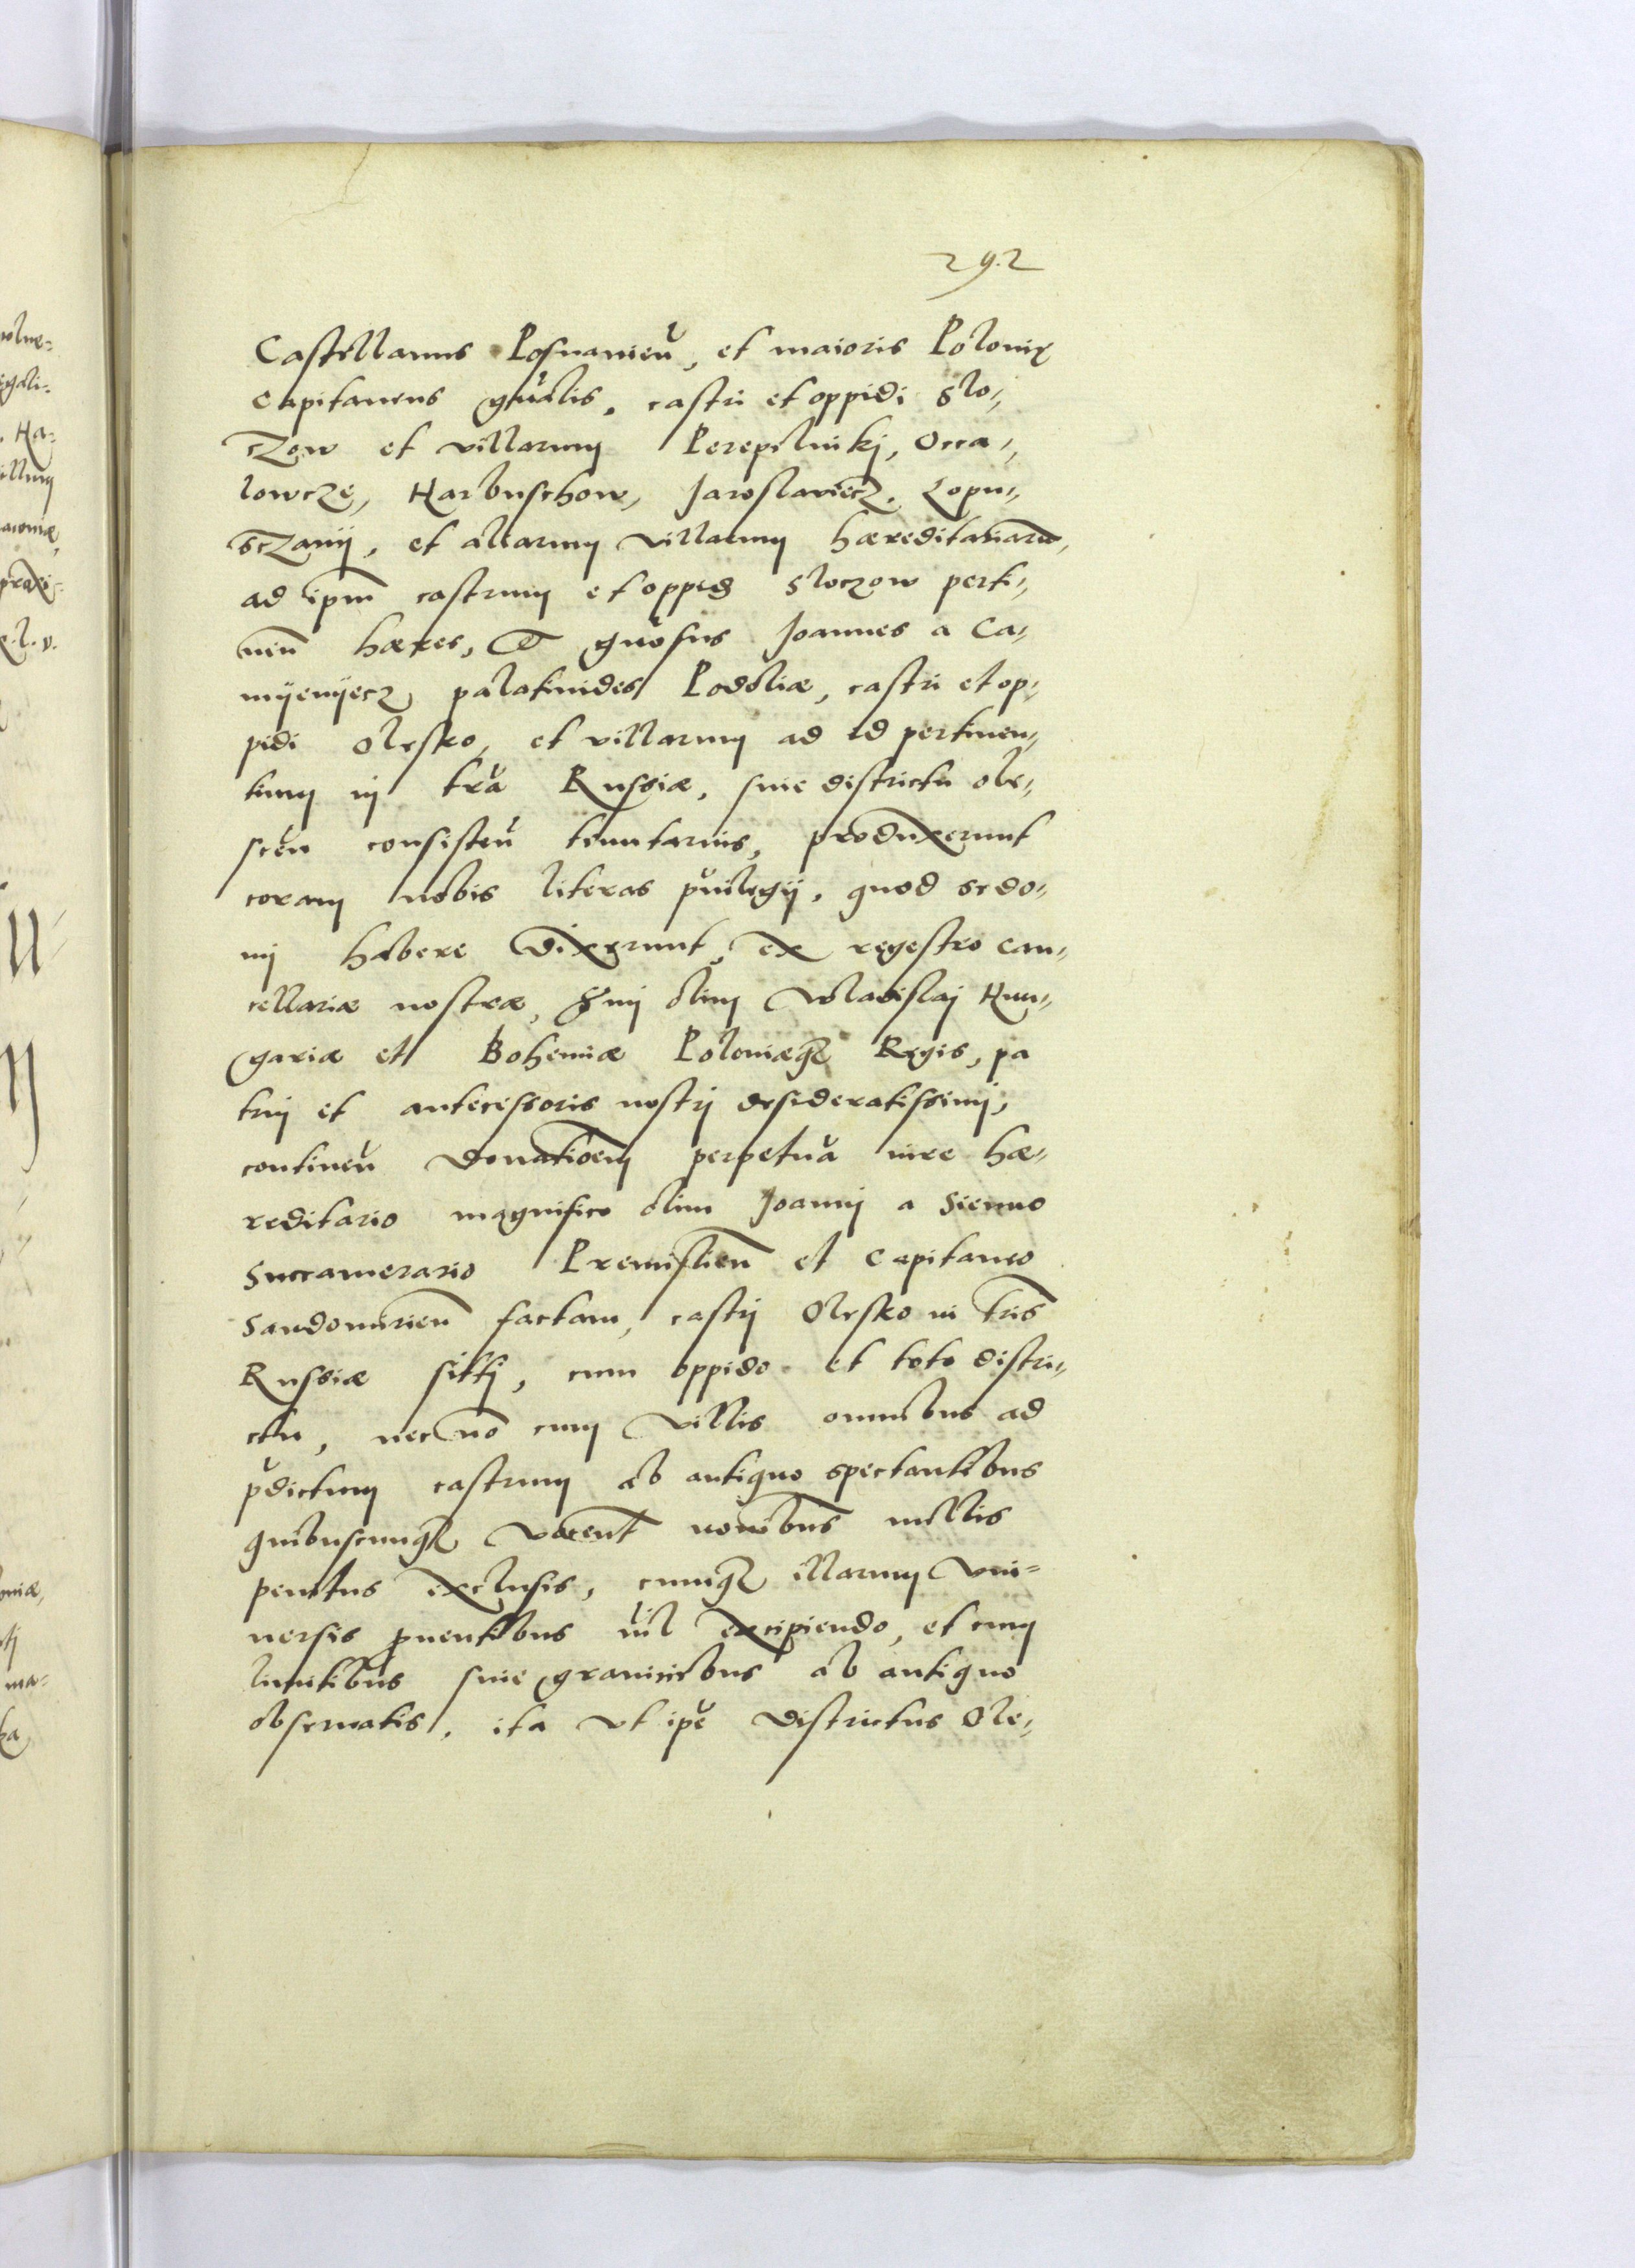 292
Castellanus Posnanien̄, et maioris Poloniæ
Capitaneus gn̄alis, castri et oppidi Slo„
czow et villarum Perepelniki, Occa„
lowcze, Harbuschow, Jaroslaviecz, Lopu„
sczany, et aliarum villarum hæreditariarū,
ad ipm̄ castrum et opped Sloczow perti„
nen̄ hæres, et gn̄osus Joannes a Ca„
myenyecz palatinides Podoliæ, castri et op„
pidi Olesko, et villarum ad id pertinen„
tium in tr̄a Russiæ, siue districtu ole„
scen̄ consisten̄ tenutarius, produxerunt
coram nobis literas pūilegij, quod se do„
mi habere dixerunt, ex regestro can„
cellariæ nostræ, Sermi olim Wladislaj Hun„
gariæ et Bohemiæ Poloniæq₃ Regis, pa
trui et antecessoris nostrj desideratissimj,
continen̄ donationem perpetuā iure hæ„
reditario magnifico olim Joannj a Sienno
Succamerario Premislien̄ et Capitaneo
Sandomirien̄ factam, castrj Olesko in tr̄is
Russiæ sittj, cum oppido et toto distri„
ctu, nec nō cum villis omnibus ad
p̄dictum castrum ab antiquo spectantibus
quibuscunq₃ vocent̄ nōibus nullis
penitus exclusis, cumq₃ illarum vni=
uersis ꝓuentibus nil excipiendo, et cum
limitibus siue graniciebus ab antiquo
obseruatis, ita vt ip̄e districtus Ole„